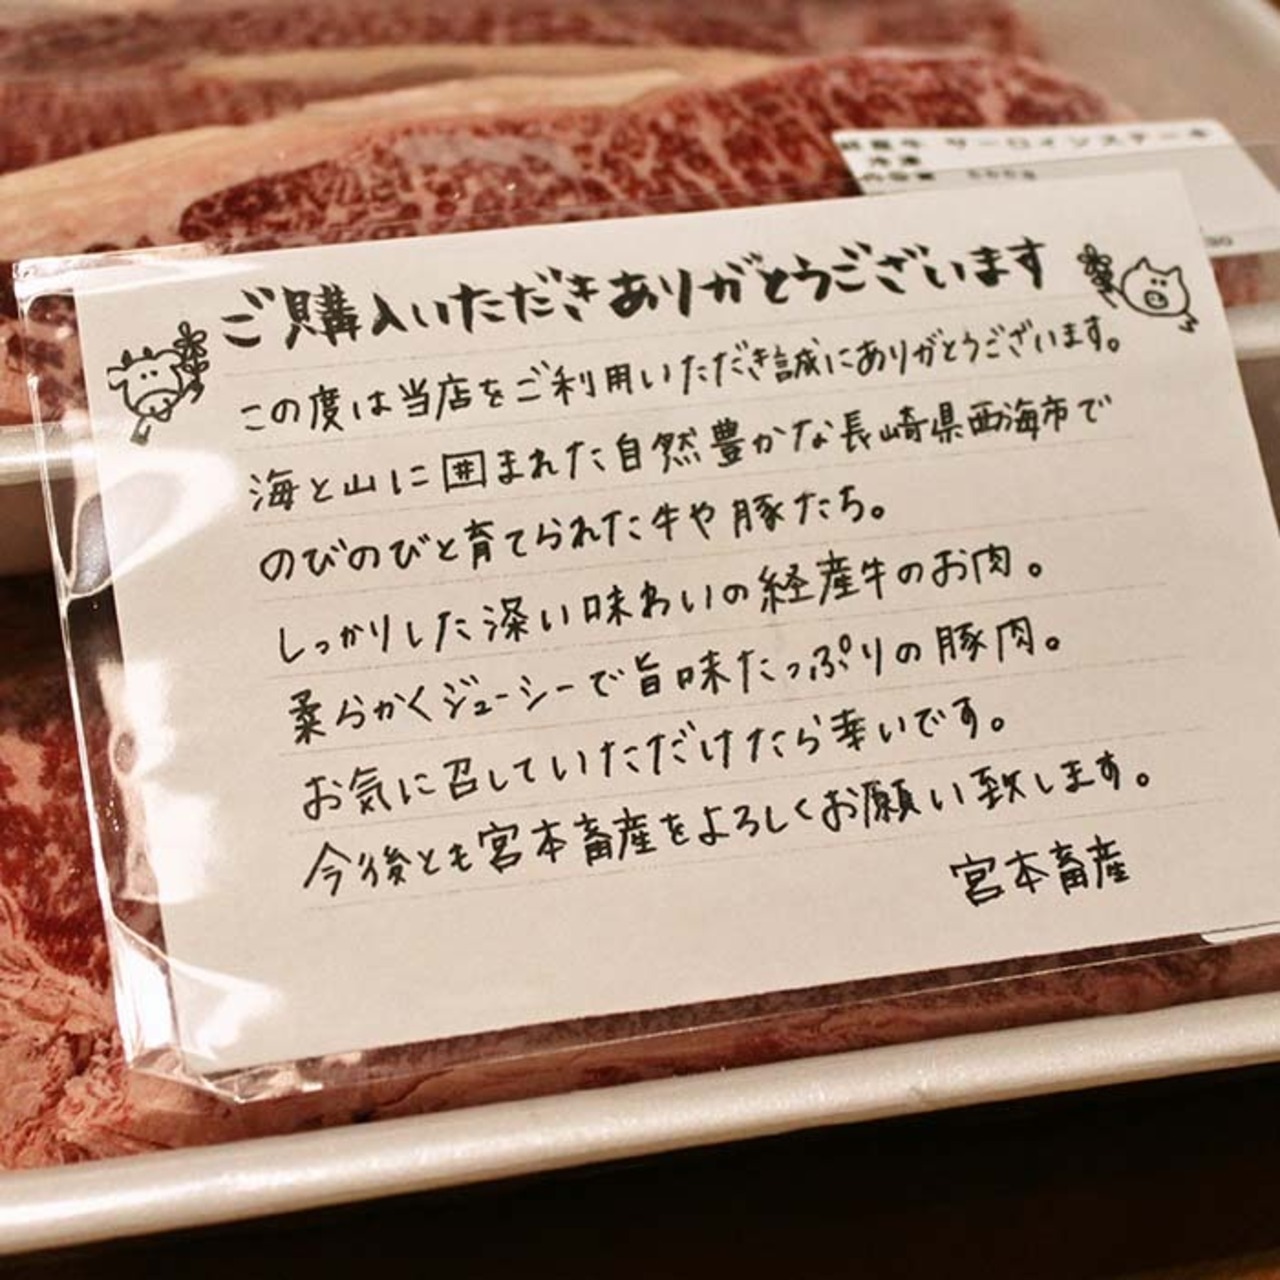 サーロインステーキ
冷凍
ご購入いただきありがとうございます
この度は当店をご利用いただき誠にありがとうございます。
海と山に囲まれた自然豊かな長崎県西海市で
のびのびと育てられた牛や豚たち。
しっかりした深い味わいの経産牛のお肉。
柔らかくジューシーで旨味たっぷりの豚肉。
お気に召していただけたら幸いです。
今後とも宮本畜産をよろしくお願い致します。
宮本畜産